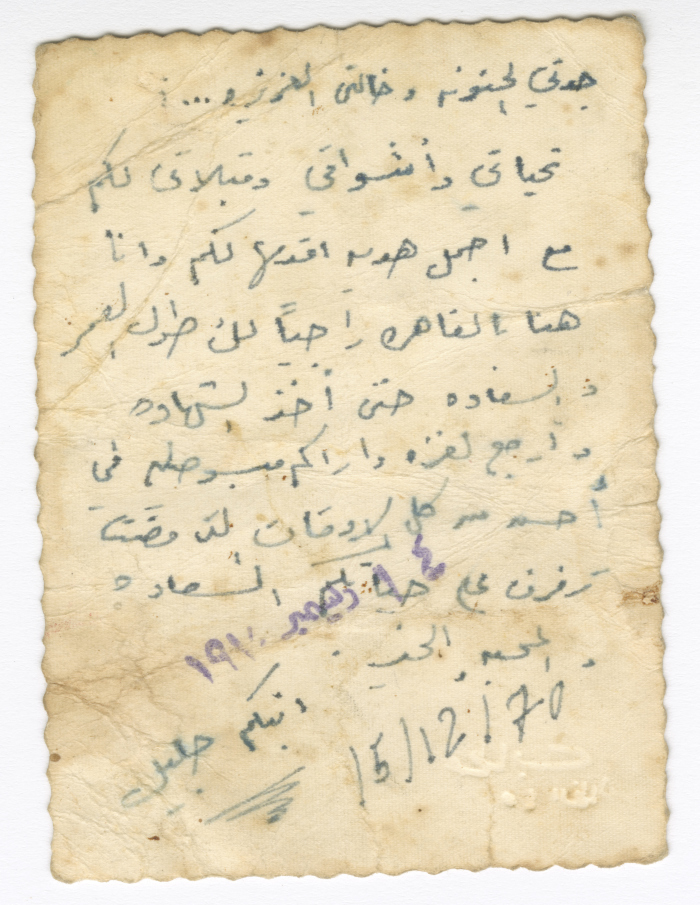 جدتي الحنونه وخالتي العزيزه ...!
تحياتي وأشواقي وقبلاتي لكم
مع اجمل هديه اقدمها لكم وانا
هنا بالقاهره راجياً لك طول العمر
والسعاده حتى أخذ الشهاده
وأرجع لغزه واراكم في
أحسن من كل الاوقات التي مضت
ترفرف على حياتكم السعاده
والمحبه والخير .
ابنكم جليل
15/12/70
ديسمبر ١٩٧٠